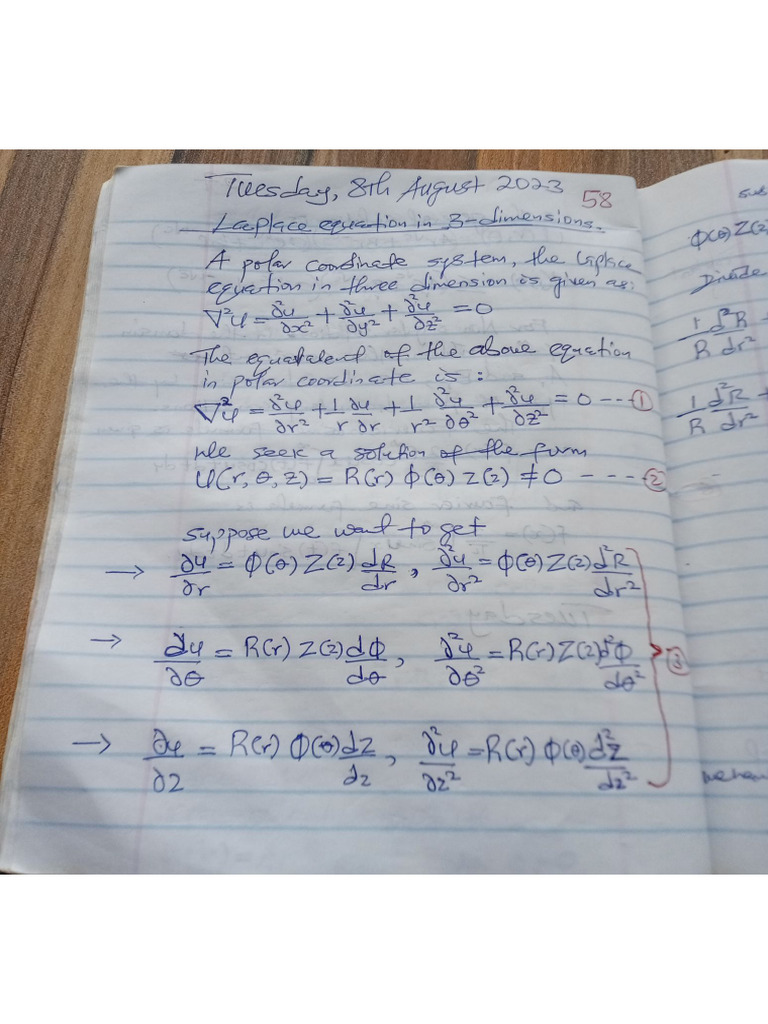 Tuesday, 8th August 2023
58
Laplace equation in 3-dimensions.
A polar coordinate system, the Laplace
equation in three dimension is given as:
∇²ψ = ∂²ψ/∂x² + ∂²ψ/∂y² + ∂²ψ/∂z² = 0
The equivalent of the above equation
in polar coordinate is:
∇²ψ = ∂²ψ/∂r² + 1/r ∂ψ/∂r + 1/r² ∂²ψ/∂θ² + ∂²ψ/∂z² = 0 --- ①
We seek a solution of the form
ψ(r, θ, z) = R(r) ϕ(θ) Z(z) ≠ 0 ---- ②
suppose we want to get
→ ∂ψ/∂r = ϕ(θ) Z(z) dR/dr, ∂²ψ/∂r² = ϕ(θ) Z(z) d²R/dr²
→ ∂ψ/∂θ = R(r) Z(z) dϕ/dθ, ∂²ψ/∂θ² = R(r) Z(z) d²ϕ/dθ² ③
→ ∂ψ/∂z = R(r) ϕ(θ) dZ/dz, ∂²ψ/∂z² = R(r) ϕ(θ) d²Z/dz²
sub
ϕ(θ) Z(z)
Divide
1/R d²R/dr² +
1/R d²R/dr² +